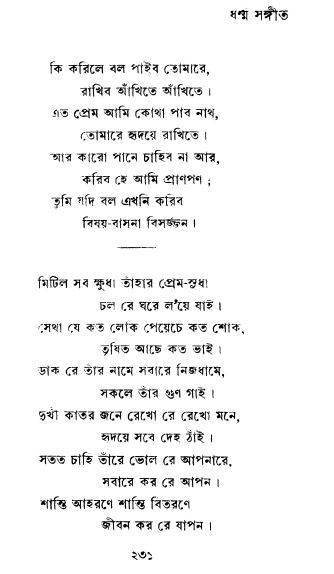 ধর্ম্ম সঙ্গীত
কি করিলে বল পাইব তোমারে,
রাখিব আঁখিতে আঁখিতে।
এত প্রেম আমি কোথা পাব নাথ,
তোমারে হৃদয়ে রাখিতে।
আর কারো পানে চাহিব না আর,
করিব হে আমি প্রাণপণ;
তুমি যদি বল এখনি করিব
বিষয়-বাসনা বিসর্জ্জন।
মিটিল সব ক্ষুধা তাঁহার প্রেম-সুধা
চল রে ঘরে ল'য়ে যাই।
সেথা যে কত লোক পেয়েচে কত শোক,
তৃষিত আছে কত ভাই।
ডাক রে তাঁর নামে সবারে নিজধামে,
সকলে তাঁর গুণ গাই।
দুখী কাতর জনে রেখো রে রেখো মনে,
হৃদয়ে সবে দেহ ঠাঁই।
সতত চাহি তাঁরে ভোল রে আপনারে,
সবারে কর রে আপন।
শান্তি আহরণে শান্তি বিতরণে
জীবন কর রে যাপন।
২৩১